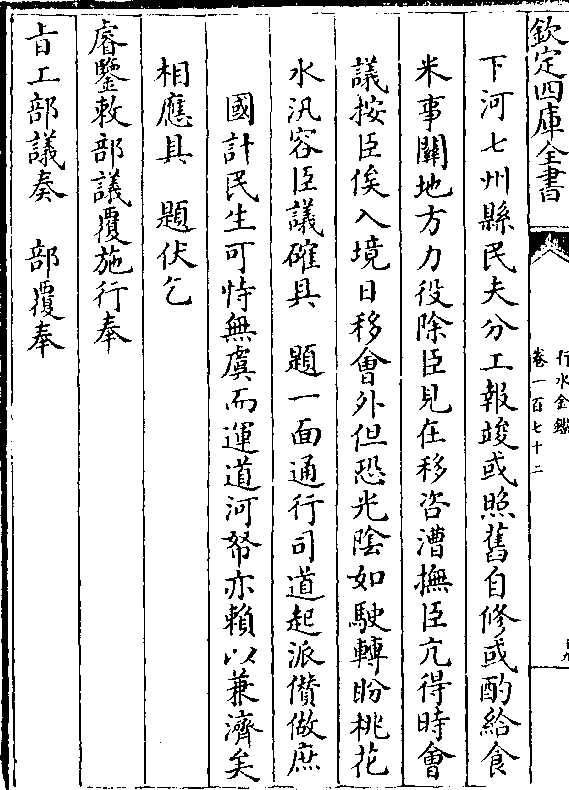 欽定四庫全書
行水金鑑
卷一百七十二
下河七州縣民夫分工報竣或照舊自修或酌給食
米事闗地方力役除臣見在移咨漕撫臣亢得時會
議按臣俟入境日移會外但恐光陰如駛轉盼桃花
水汛容臣議確具 題一面通行司道起派儹做庶
國計民生可恃無虞而運道河帑亦賴以兼濟矣
相應具 題伏乞
睿鑒敕部議覆施行奉
㫖工部議奏 部覆奉